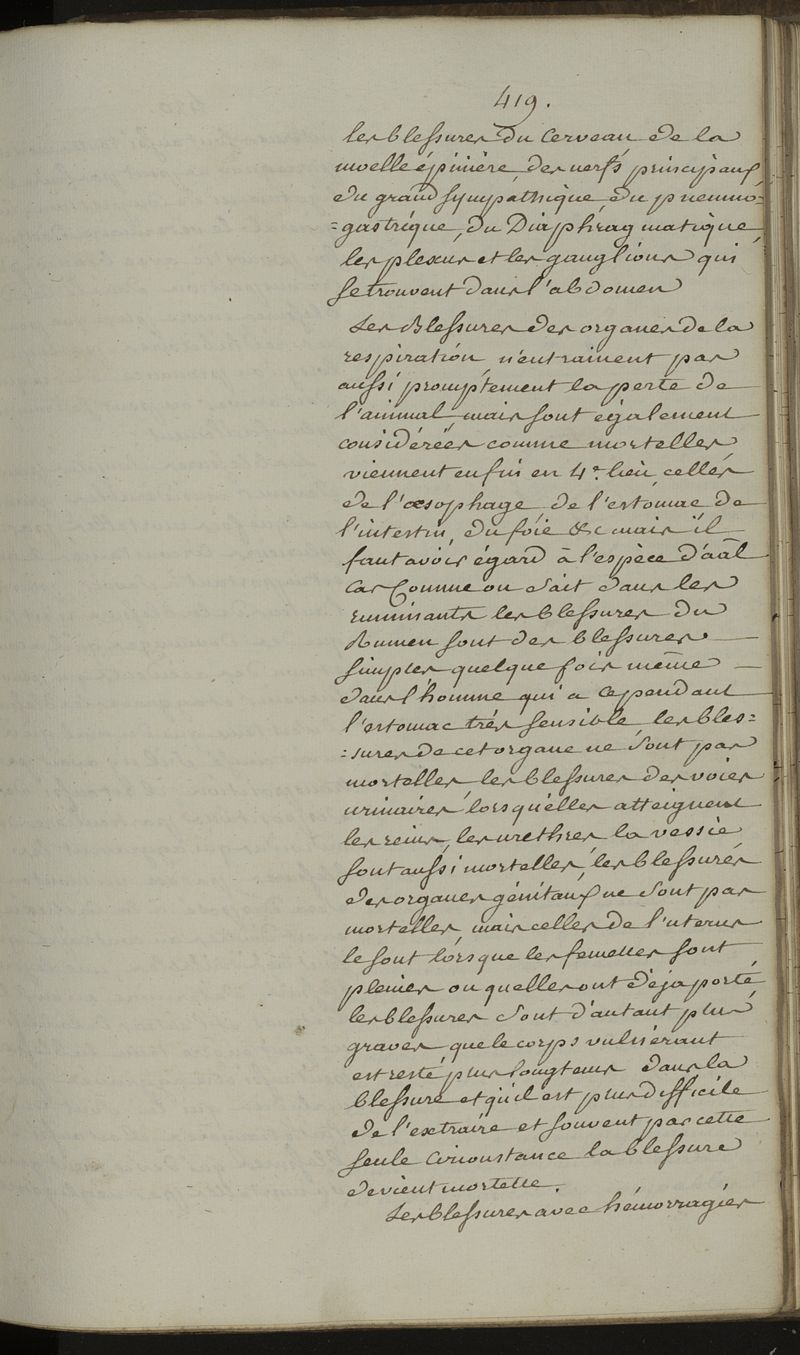 419.
les blessures du Cerveau de la
moelle épinière, des nerfs principaux
du grand sympathique, du pneumo=
=gastrique, du Diaphragmatique,
les plexus et les ganglions qui
se trouvent dans l'abdomen
Les Blessures des organes de la
respiration n'entrainent pas
aussi promptement la perte de
l'animal, mais sont également
considérées comme mortelles,
viennent enfin en 4e. lieu, celles
de l'œsophage, de l'estomac, de
l'intestin, du foie &c mais il
faut avoir égard à l'espèce d'aāl
Car Comme on sait dans les
ruminants les blessures du
Rumen sont des blessures
simples, quelque fois même
dans l'homme qui a cependant
l'estomac très sensible, les bles=
=sures de cet organe ne sont pas
mortelles, les blessures des voies
urinaires, lorsqu'elles atteignent
les reins, les urethres, la vessie
sont aussi mortelles, les blessures
des organes génitaux ne sont pas
mortelles, mais celles de l'uterus
le sont lorsque les femelles sont
pleines ou quelles ont déja porté,
les blessures sont d'autant plus
graves que le corps vulnérant
est resté plus longtems dans la
blessure et qu'il est plus difficile
de l'extraire et souvent par cette
seule circonstance la blessure
devient mortelle.
Les blessures avec hémorragies